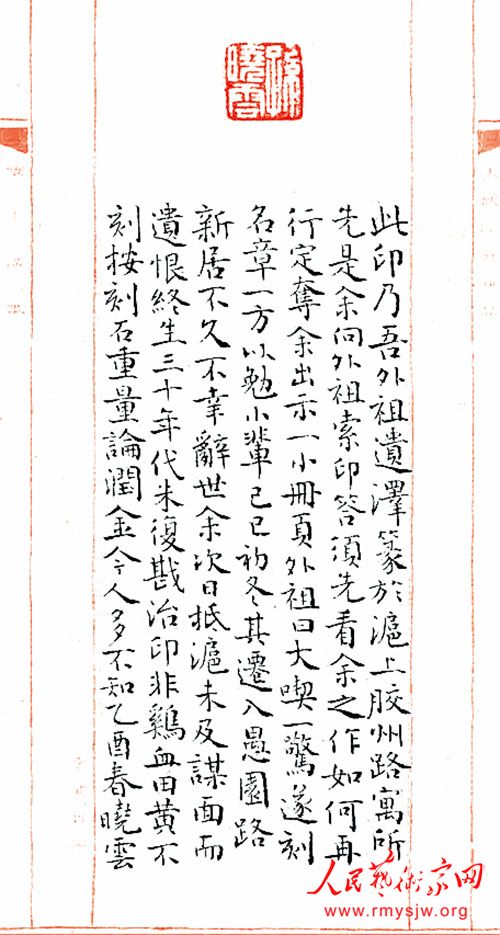 孫曉雲
此印乃吾外祖遺澤篆於滬上胶州路寓所
先是余向外祖索印答須先看余之作如何再
行定奪余出示一小冊頁外祖曰大喫一驚遂刻
名章一方以勉小輩己巳初冬其遷入愚園路
新居不久不幸辭世余次日抵滬未及謀面而
遺恨終生三十年代朱復戡治印非鷄血田黄不
刻按刻石重量論潤金今人多不知乙酉春曉雲
人民藝術家网
www.rmysjw.org